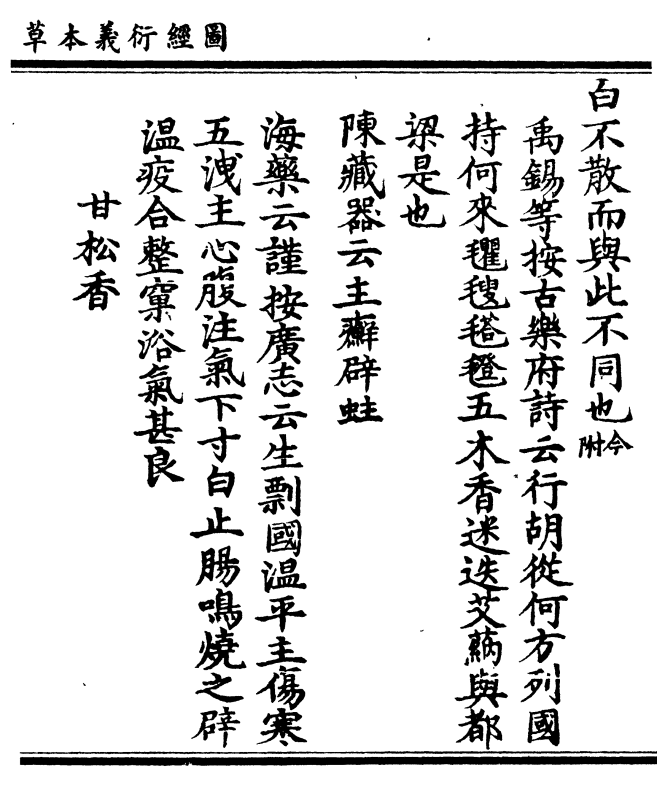 圖經衍義本草
白不散而與此不同也今附
禹錫等按古樂府詩云行胡從何方列國
持何來氍毹㲪㲪五木香迷迭艾蒳與都
梁是也
陳藏器云主癬辟蛀
海藥云謹按廣志云生剽國温平主傷寒
五洩主心腹注氣下寸白止腸鳴燒之辟
温疫合蟹窠浴氣甚良
甘松香